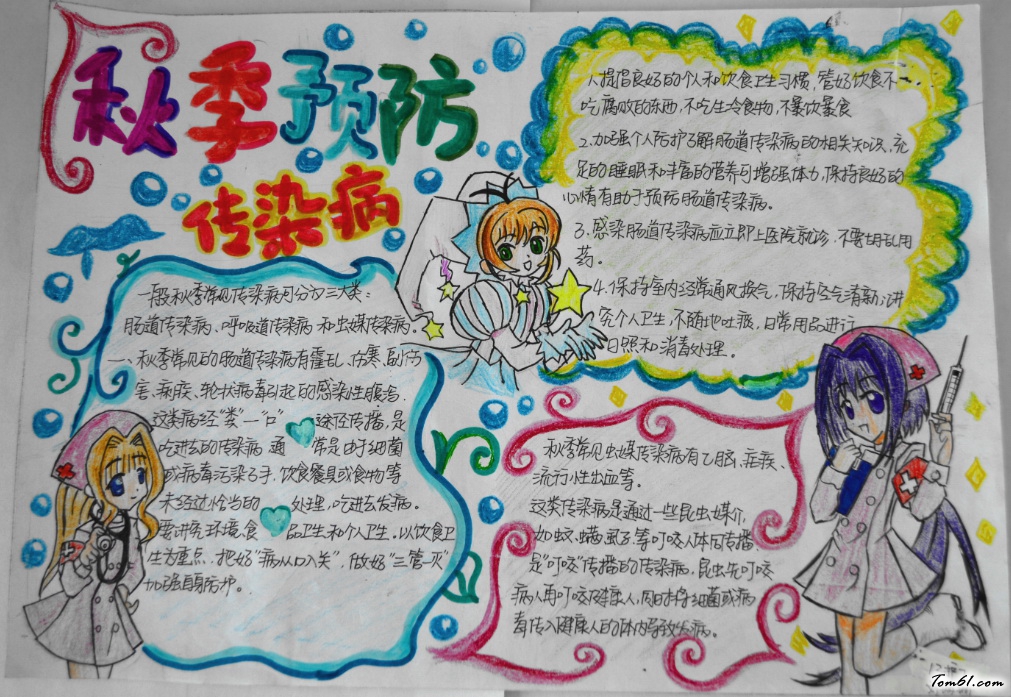 秋季预防
传染病
一般秋季常见传染病可分为三大类：
肠道传染病、呼吸道传染病和虫媒传染病。
一、秋季常见的肠道传染病有霍乱、伤寒、副伤
害、痢疾、轮状病毒引起的感染性腹泻。
这类病经“粪”一“口”途径传播，是
吃进去的传染病 通常是由于细菌
或病毒污染了手、饮食餐具或食物等
未经过恰当的处理，吃进去发病。
要讲究环境、食品卫生和个人卫生。以饮食卫
生为重点、把好“病从口入关”，做好“三管一灭”
加强自身防护。
1.提倡良好的个人和饮食卫生习惯，管好饮食不
吃腐败的东西，不吃生冷食物，不暴饮暴食
2.加强个人防护了解肠道传染病的相关知识，充
足的睡眠和丰富的营养可增强体力，保持良好的
心情有助于预防肠道传染病。
3.感染肠道传染病应立即上医院就诊，不要胡乱用
药。
4.保持室内经常通风换气，保持空气清新，讲
究个人卫生，不随地吐痰，日常用品进行
日照和消毒处理。
秋季常见虫媒传染病有乙脑、疟疾、
流行性出血等。
这类传染病是通过一些昆虫媒介，
如蚊、螨虱子等叮咬人体而传播，
是“叮咬”传播的传染病，昆虫先叮咬
病人再叮咬健康人，同时将细菌或病
毒传入健康人的体内导致发病。
Tom61.com